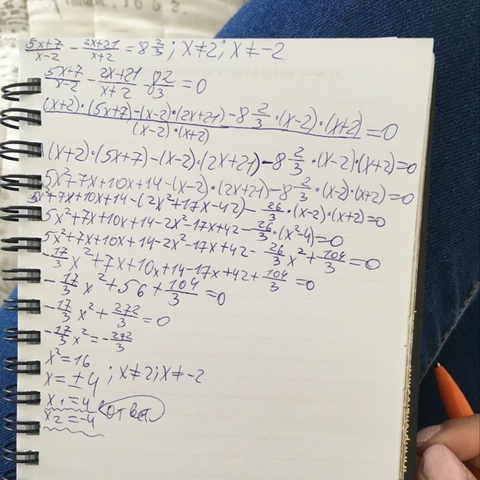 5x+7/x-2 - 2x+21/x+2 = 8 2/3 ; x≠2; x≠-2
5x+7/x-2 - 2x+21/x+2 8 2/3 = 0
(x+2)·(5x+7)-(x-2)·(2x+21)-8 2/3·(x-2)·(x+2)/(x-2)·(x+2) = 0
(x+2)·(5x+7)-(x-2)·(2x+21)-8 2/3·(x-2)·(x+2)=0
5x²+7x+10x+14-(x-2)·(2x+21)-8 2/3·(x-2)·(x+2)=0
5x²+7x+10x+14-(2x²+17x-42)-26/3·(x-2)·(x+2)=0
5x²+7x+10x+14-2x²-17x+42-26/3·(x²-4)=0
5x²+7x+10x+14-2x²-17x+42-26/3x²+104/3=0
-17/3x²+7x+10x+14-17x+42+104/3=0
-17/3x²+56+104/3=0
-17/3x²+272/3=0
-17/3x²=-272/3
x²=16
x=±4 ; x≠2; x≠-2
x₁=4 Ответ
x₂=-4